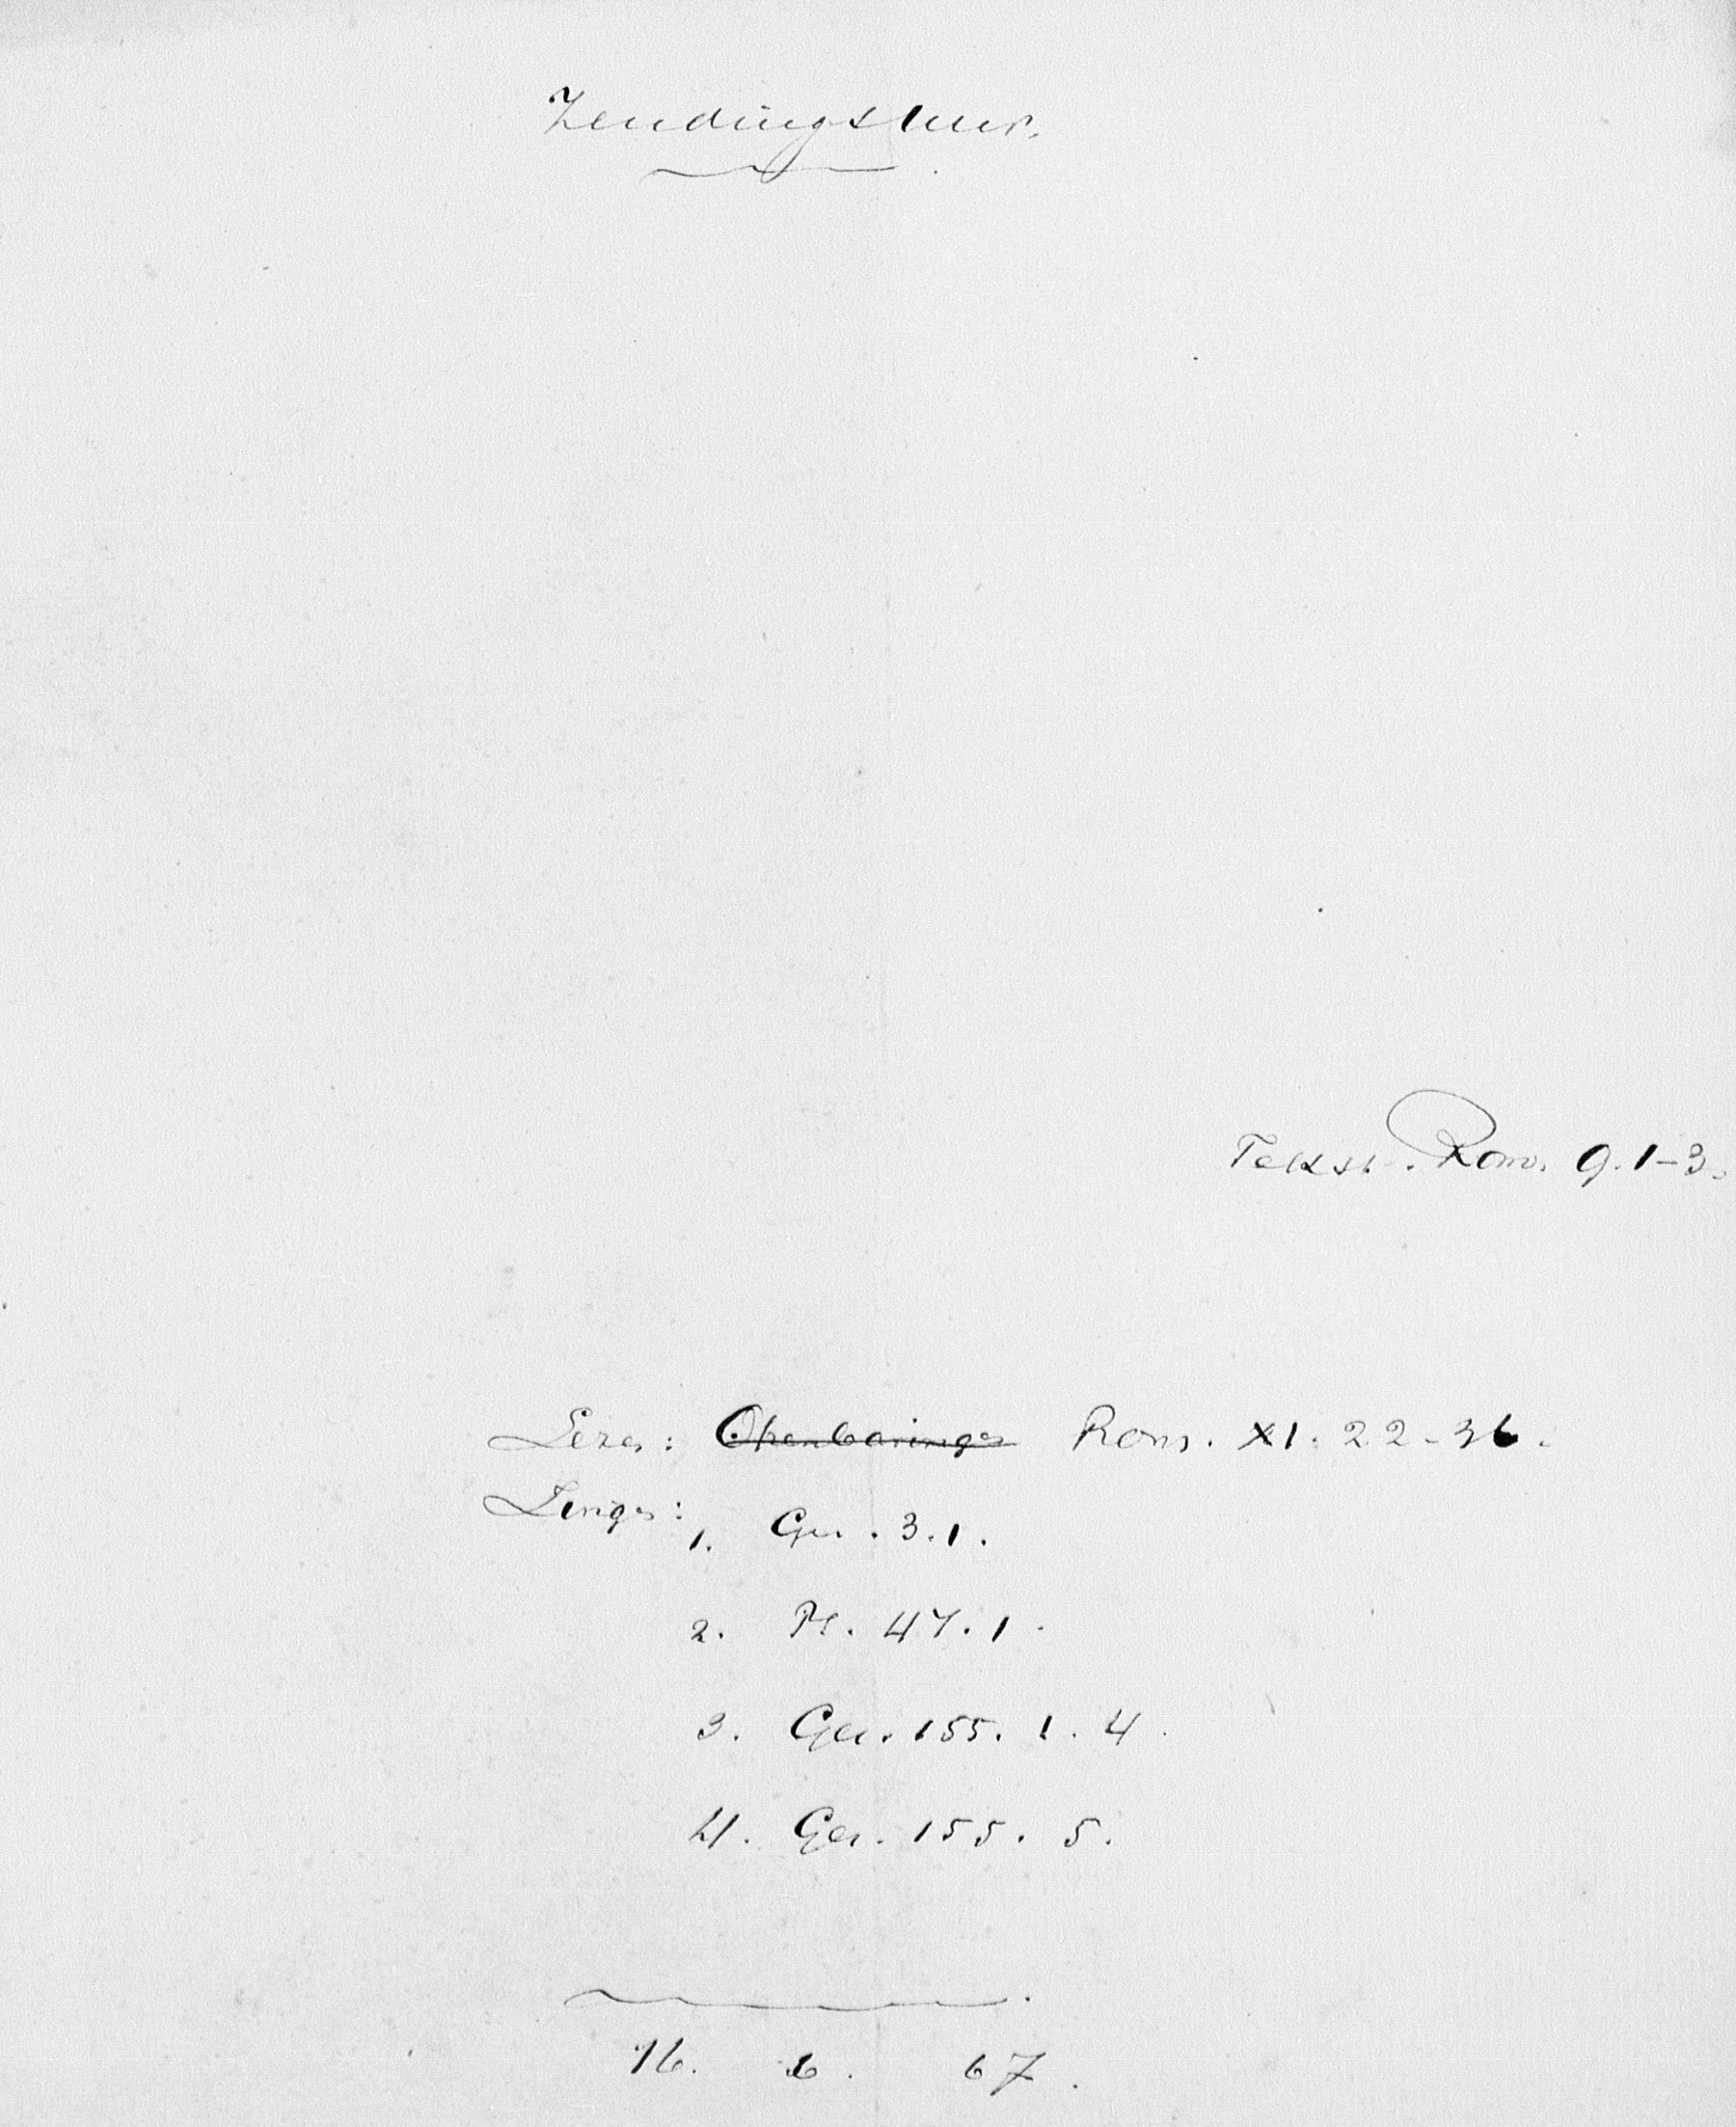 Zendingsuur.
Tekst. Rom. 9.1-3.
Lezen: Openbaringen Rom. XI. 22-36.
Zingen:
1. Gez. 3.1.
2. Ps. 47.1.
3. Gez. 155. 1. 4.
4. Gez. 155. 5.
16. 6. 67.